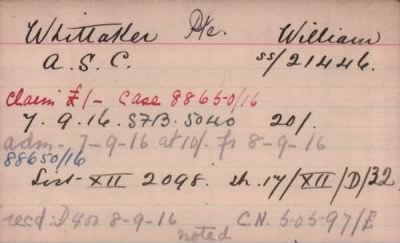 Whittaker Pte. William
A. S. C. SS/21446.
Claim £1/- Case 88650/16
7. 9. 16. 5713. 5040 20/.
adm- 7-9-16 at 10/- fr 8-9-16
88650/16
List XII 2098. sh. 17/XII/D/32
recd: D400 8-9-16 C.N. 50597/E
noted